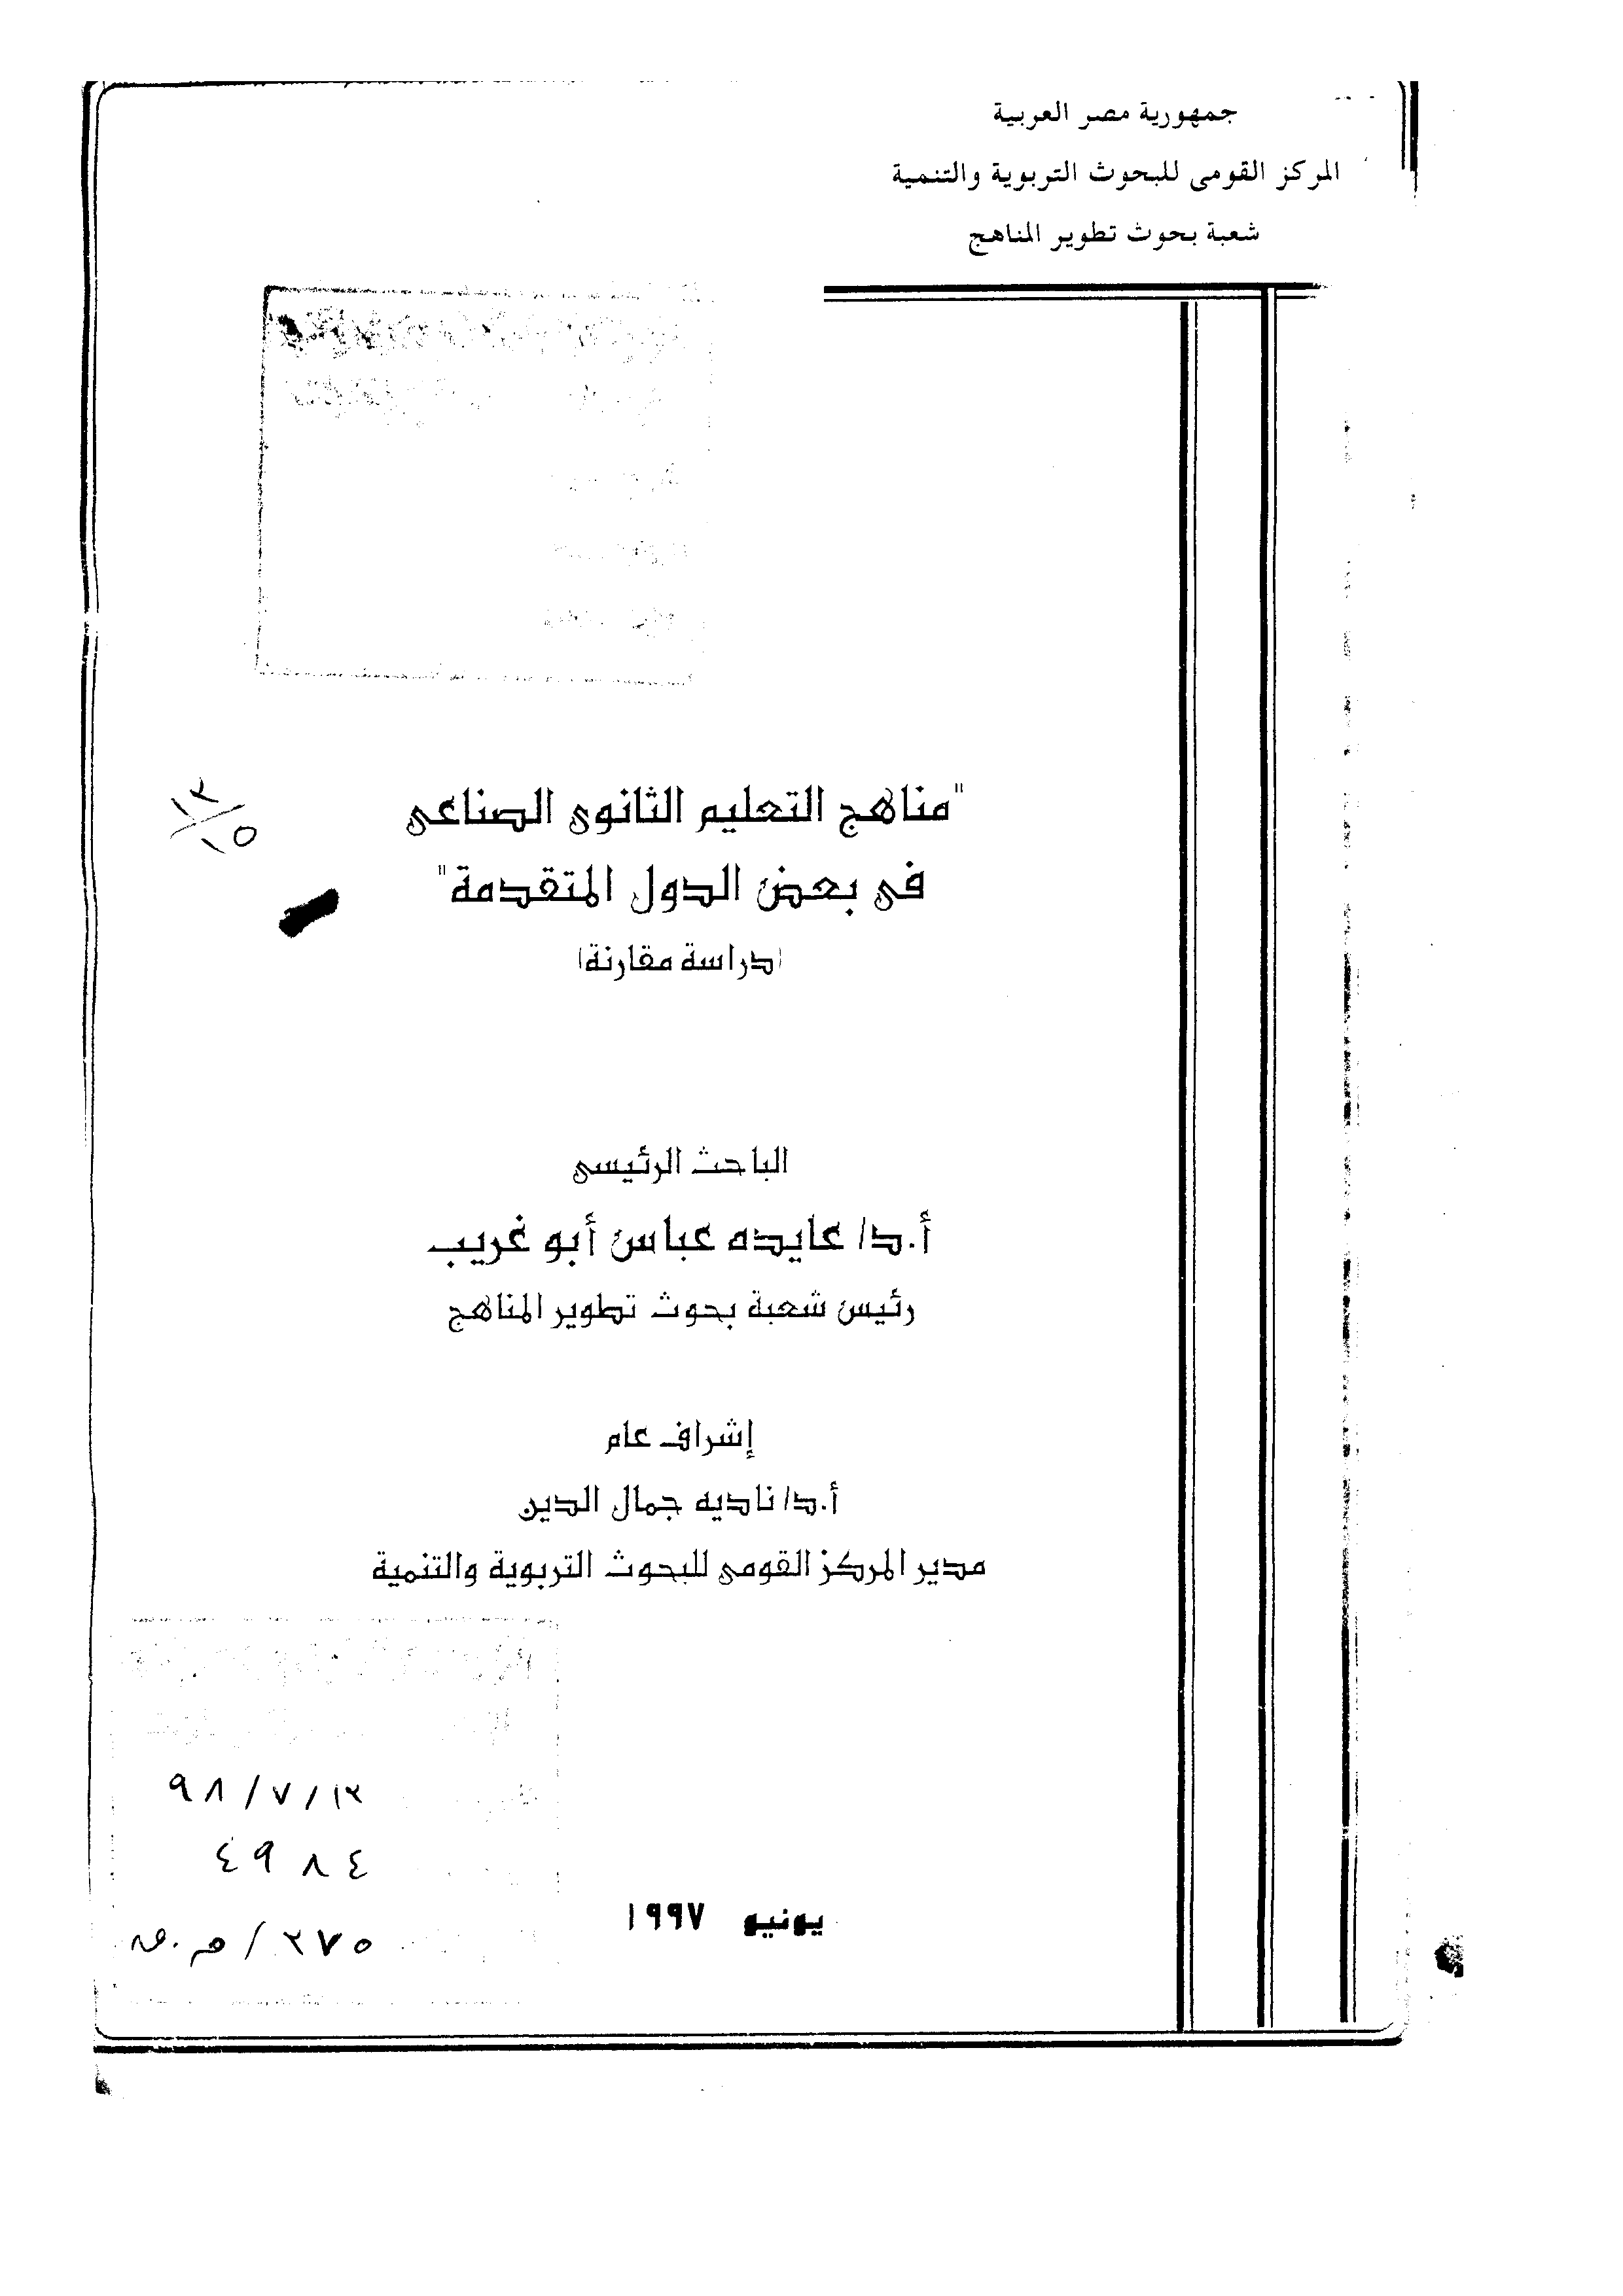 جمهورية مصر العربية
المركز القومى للبحوث التربوية والتنمية
شعبة بحوث تطوير المناهج
"مناهج التعليم الثانوى الصناعى
فى بعض الدول المتقدمة"
(دراسة مقارنة)
الباحث الرئيسى
أ.د/ عايده عباس أبو غريب
رئيس شعبة بحوث تطوير المناهج
إشراف عام
أ.د/ ناديه جمال الدين
مدير المركز القومى للبحوث التربوية والتنمية
٤٩٨٤
يونيو ١٩٩٧